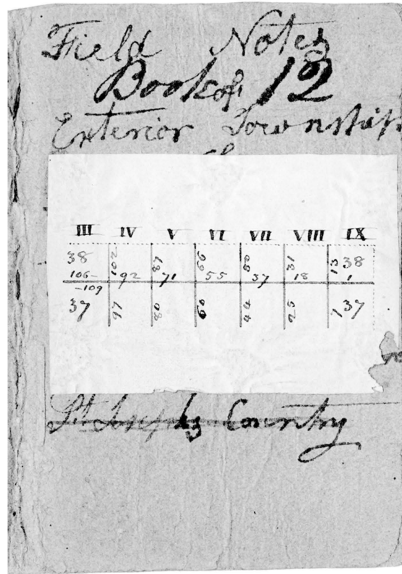 Field Notes
Book of 12
Exterior Township
III IV V VI VII VIII IX
38 102 87 66 50 31 13 38
106 92 71 55 37 18 1
109
37 97 80 60 44 25 7 37
St Josephs Country